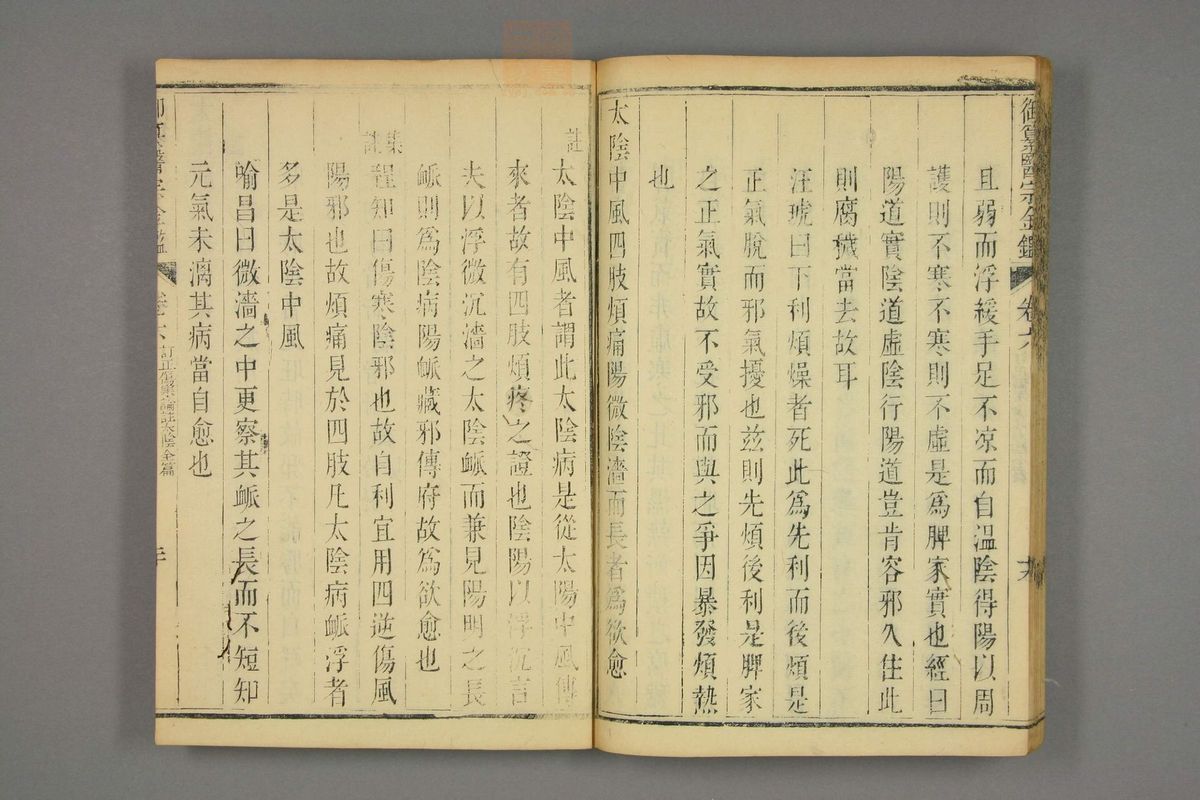 御纂醫宗金鑑 卷六
且弱而浮緩手足不凉而自溫陰得陽以周
護則不寒不寒則不虛是爲脾家實也經曰
陽道實陰道虛陰行陽道豈肯容邪久住此
則腐穢當去故耳
汪琥曰下利煩燥者死此爲先利而後煩是
正氣脫而邪氣擾也兹則先煩後利是脾家
之正氣實故不受邪而與之爭因暴發煩熱
也
太陰中風四肢煩痛陽微陰濇而長者爲欲愈
註
太陰中風者謂此太陰病是從太陽中風傳
來者故有四肢煩疼之證也陰陽以浮沉言
夫以浮微沉濇之太陰脈而兼見陽明之長
脈則爲陰病陽脈藏邪傳府故爲欲愈也
集註
程知曰傷寒陰邪也故自利宜用四逆傷風
陽邪也故煩痛見於四肢凡太陰病脈浮者
多是太陰中風
喻昌曰微濇之中更察其脈之長而不短知
元氣未漓其病當自愈也
御纂醫宗金鑑 卷六 訂正傷寒論註太陰全篇